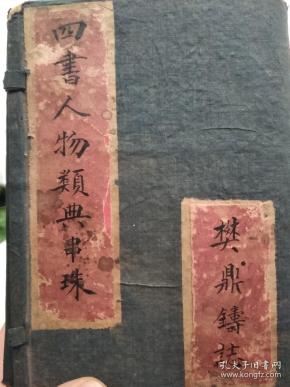 四書人物類典串珠
樊鼎鑄誌
孔夫子旧书网